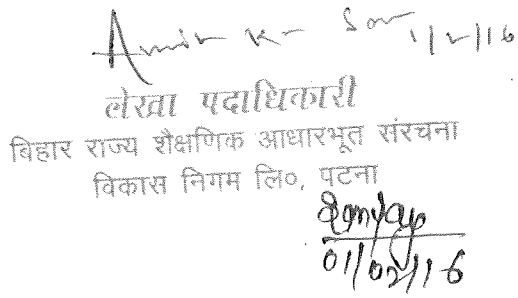 1/2/16
लेखा पदाधिकारी
बिहार राज्य शैक्षणिक आधारभूत संरचना
विकास निगम लि०, पटना
01/02/16